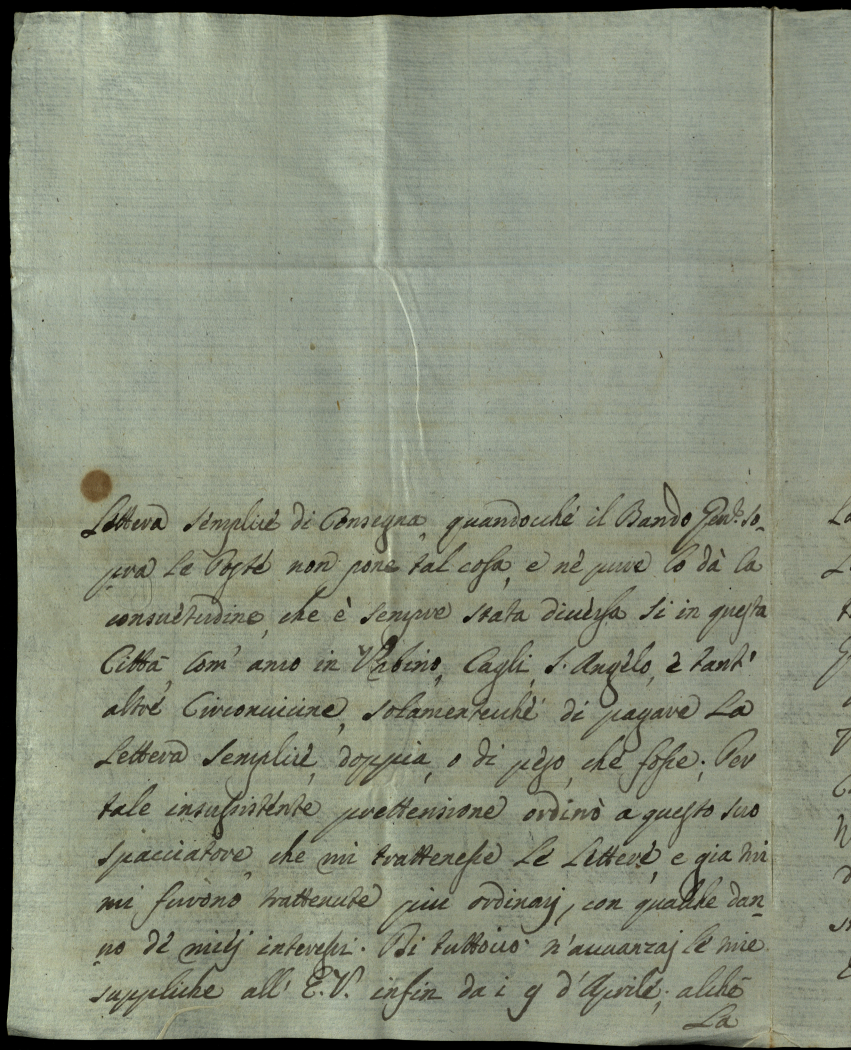 Lettera semplice di Consegna, quandocché il Bando Gen.le so-
pra le Poste non pone tal cosa, e né pure lo dà la
consuetudine, che è sempre stata diversa sì in questa
Città, com' anco in Urbino, Cagli, S. Angelo, e tant'
altre Circonvicine, solamentecché di pagare La
Lettera Semplice, doppia, o di peso, che fosse. Per
tale insussistente prettensione ordinò a questo suo
spacciatore, che mi trattenesse Le Lettere, e gia
mi furono trattenute piu ordinarj, con qualche dan-
no de miej interessi. Di tuttocio n'avvanzaj le mie
suppliche all' E.V. infin da i 9 d'Aprile; alché
La